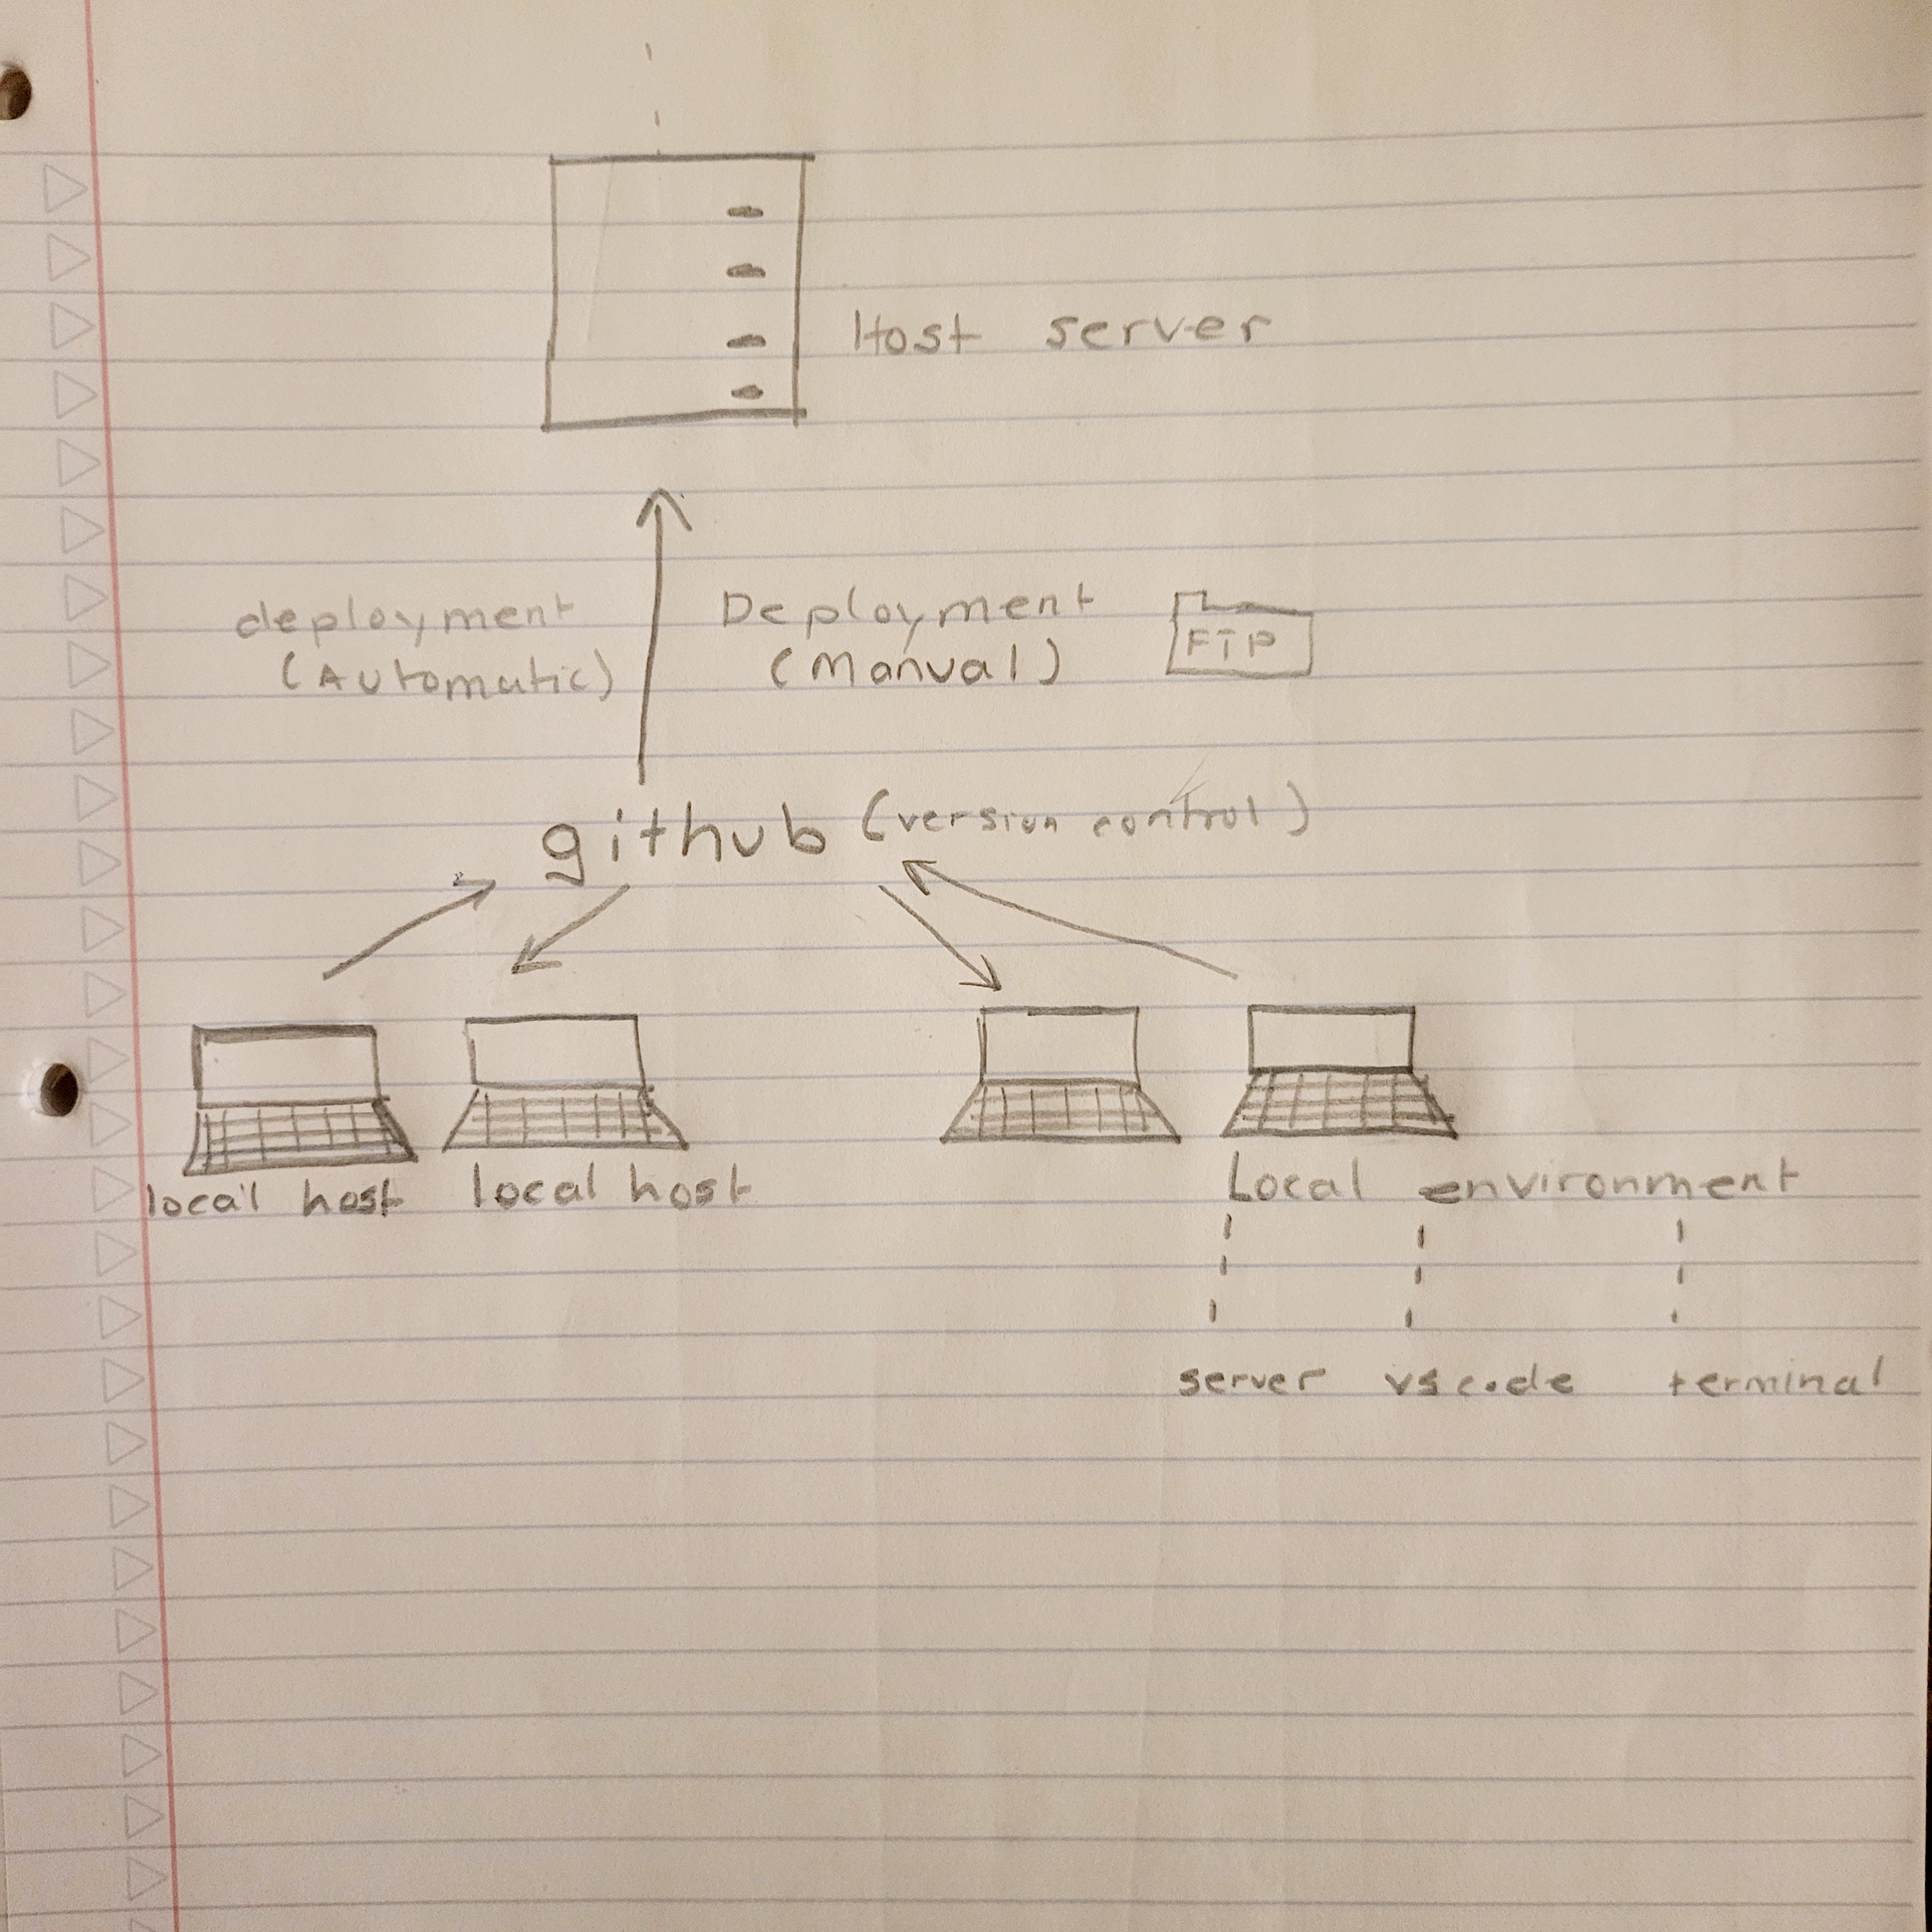 Host server
deployment
(Automatic)
Deployment
(Manual)
FTP
github (version control)
local host
local host
Local environment
server vscode terminal